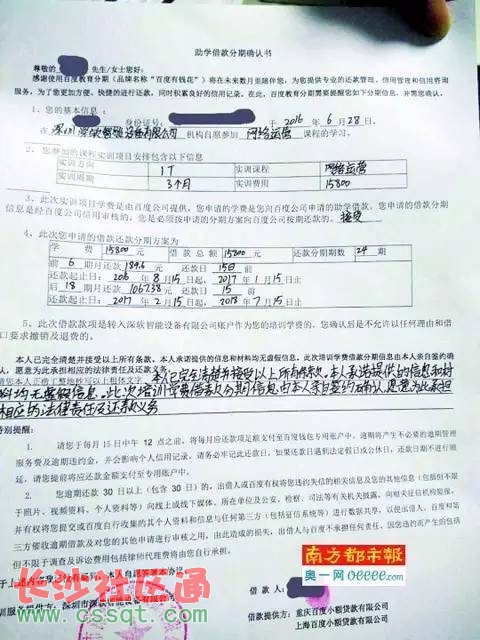 助学借款分期确认书
尊敬的 先生/女士您好:
感谢使用百度教育分期（品牌名称“百度有钱花”）将在未来数月里陪伴您，为您提供专业的还款管理、信用管理和信用咨询
服务，为了您更加方便、快捷的进行还款，同时积累良好的信用记录，在此，百度教育分期需要提醒您如下分期信息，并需您确认。
1、您的基本信息：
身份证号: 于 2016 年 6 月 28 日，
在 深圳 深软智能设备有限公司 机构自愿参加 网络运营 课程的学习。
2、您参加的课程实训项目安排包含以下信息
实训方向 IT 实训课程 网络运营
实训周期 3个月 实训费用 15800
3、此次实训项目学费是由百度公司提供，您申请的学费是您向百度公司申请的助学借款。您申请的借款分期
信息是经百度公司信用审核的，您是必须按申请的分期方案向百度公司按期还款的。 接受
4、此次您申请的借款还款分期方案为
学 费 15800元 借 款 总 额 15800元 还款分期期数 24 期
前 6 期月还款 189.6 元 还款日 15日前
还款起止日: 2016 年 8 月 15 日起, 2017 年 1 月 15 日止
后 18 期月还款 1067.38 元 还款日 15 前
还款起止日: 2017 年 2 月 15 日起, 2018 年 7 月 15 日止
5、此次借款款项是转入深软智能设备有限公司账户作为您的培训学费，您确认后是不允许以任何理由和借
口要求撤销及退费的。
本人已完全清楚并接受以上所有条款，本人承诺提供的信息和材料均无虚假信息，此次培训学费借款分期信息由本人亲自签约确
认，愿意为此承担相应的法律责任及还款义务。
请您本人正楷工整地抄写以上粗体文字 本人已完全清楚并接受以上所有条款,本人承诺提供的信息和材
料均无虚假信息,此次培训学费借款分期信息由本人亲自签约确认,愿意为此承担
相应的法律责任及还款义务
特别提醒：
1. 请您于每月 15 日中午 12 点之前，将每月应还款项足额支付至百度钱包专用账户中，逾期将产生不必要的逾期管理
服务费及逾期违约金，并会影响个人信用记录，请务必牢记此还款日，如果还款日遇到法定假日或公休日，还款日不进行顺
延，请您提前将应还款金额支付至专用账户中。
2. 您逾期还款 30 日以上（包含 30 日）的，出借人或百度有权将您违约失信的相关信息及您的其他信息（包括但不限
于照片、视频资料、个人资料等）向线上或线下媒体、所在单位及公安、检察、司法等有关机关披露，向相关征信机构提报，
并有权将您提交或百度自行收集的其个人资料和信息与任何第三方（包括征信系统等）进行数据共享，以便出借人、百度和第
三方催收逾期借款及对您的其他申请进行审核之用，由此造成的损失，出借人与百度不承担任何责任，因您违约而产生的包括
但不限于调查及诉讼费用包括律师代理费将由您自行承担。
南方都市报
奥一网 oeeee.com
借 款 人:
借款提供方: 重庆百度小额贷款有限公司
上海百度小额贷款有限公司
训服务提供方: 深圳市深软智能设备有限公司
长沙社区通
www.cssqt.com